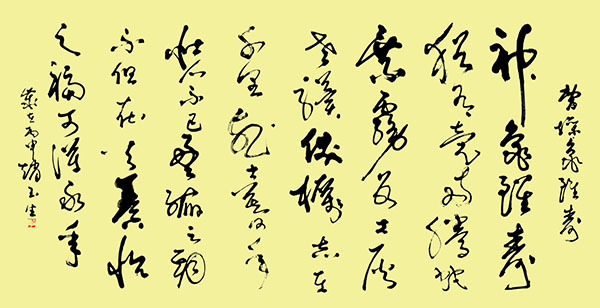 曹操龜雖壽
神龜雖壽
猶有竟時騰蛇
乘霧為土灰
老驥伏櫪志在
千里烈士暮年
壯心不已盈縮之期
不但在天養怡
之福可得永年
歲在丙申